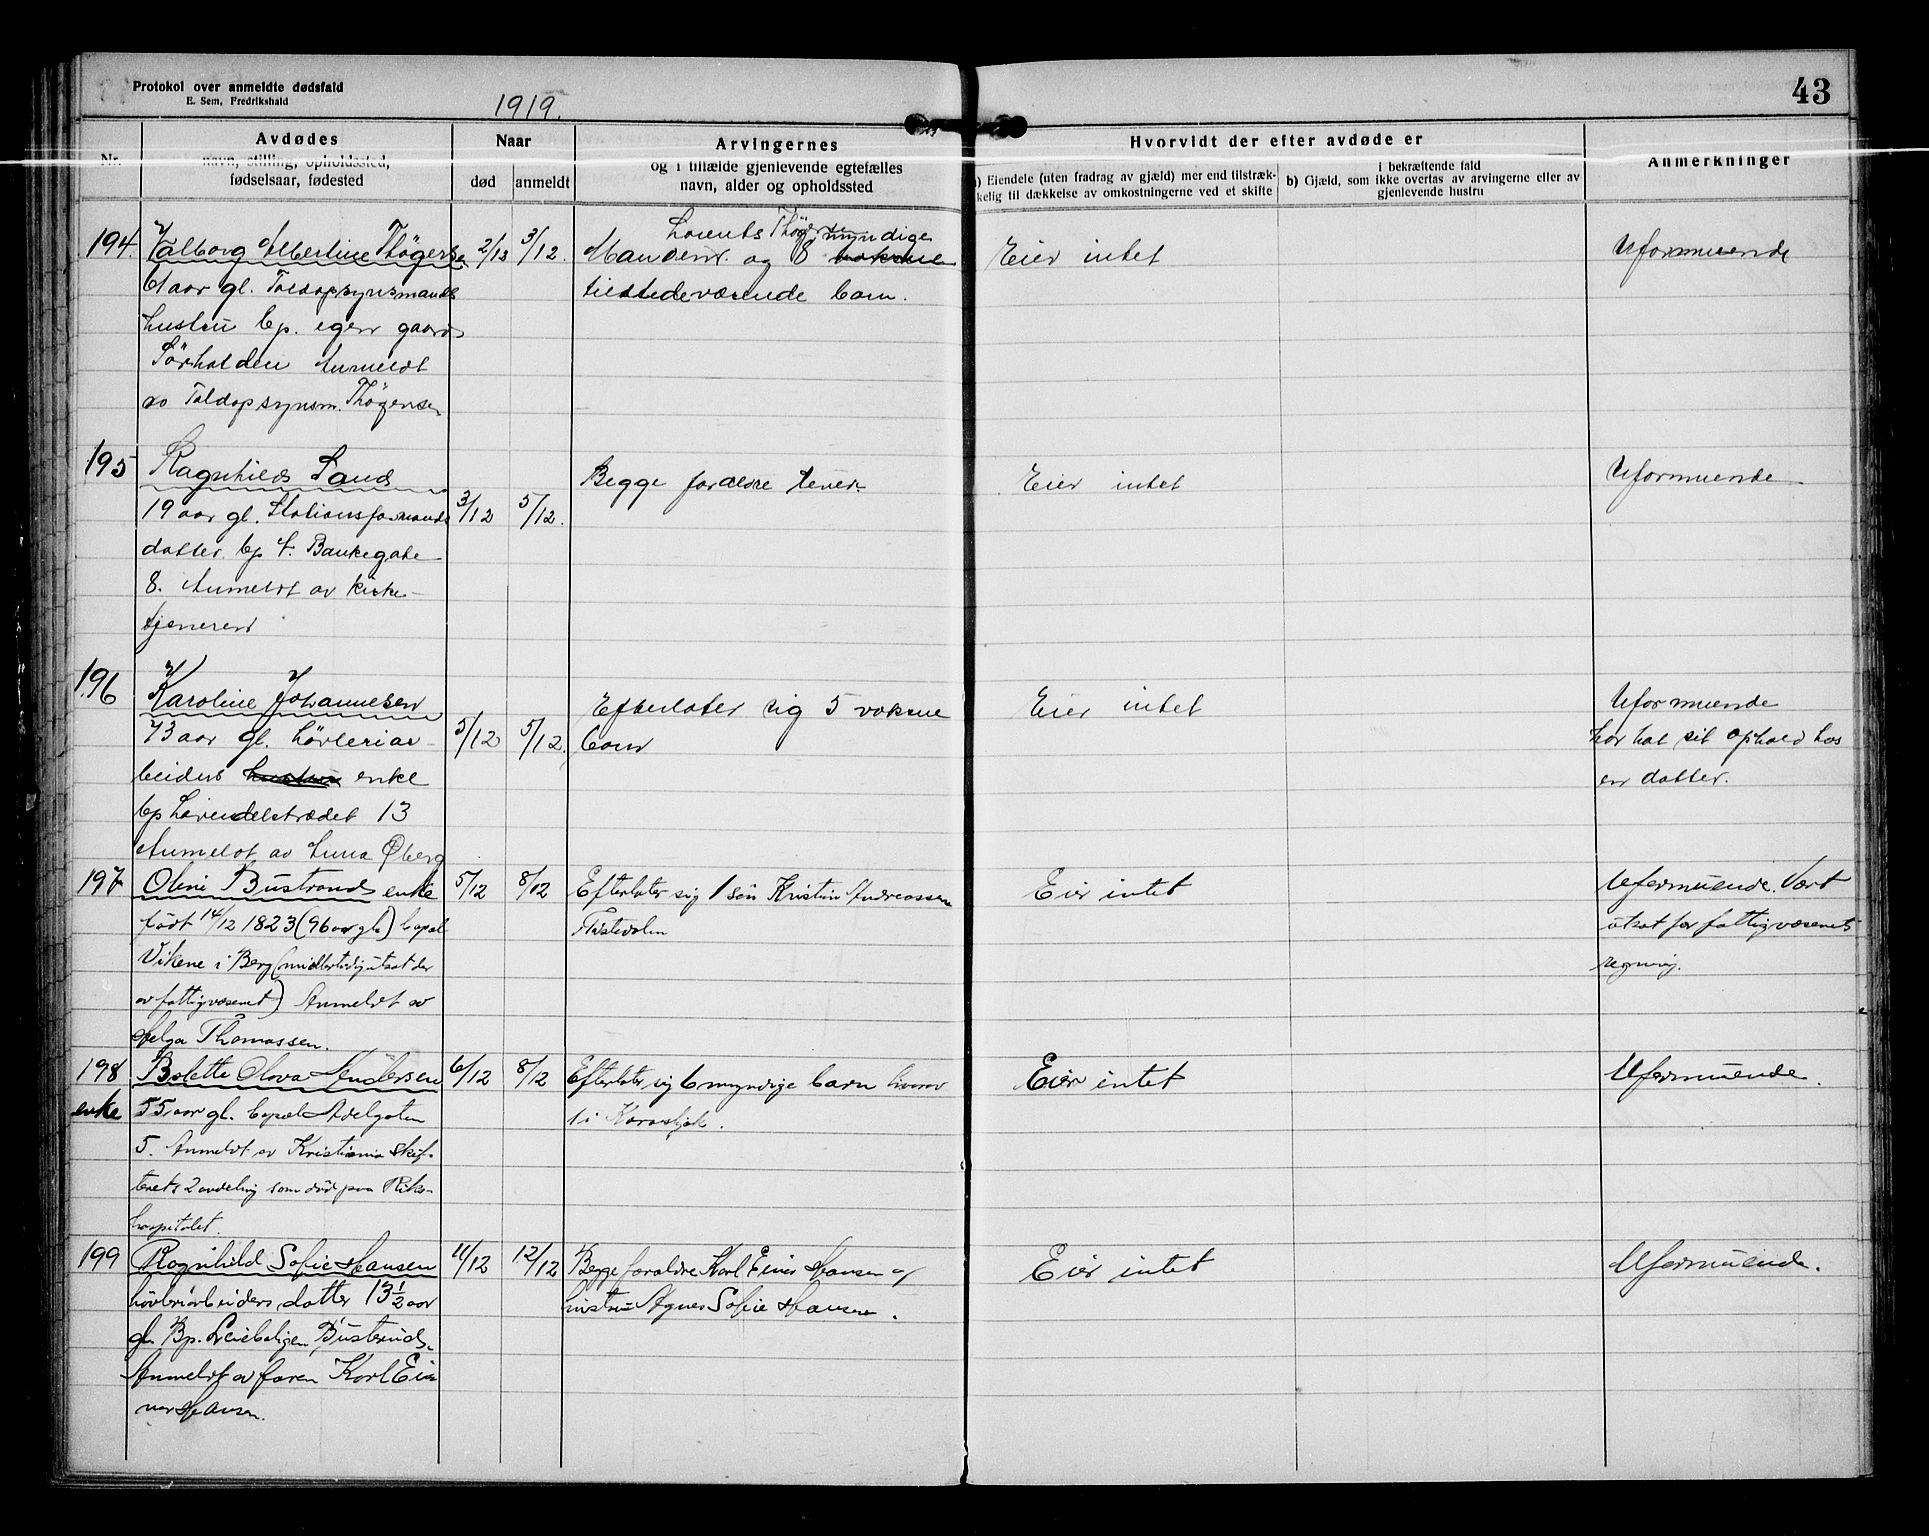 Protokol over anmeldte dødsfald
E. Sem, Fredrikshald
1919.
43
Nr.
Avdødes
navn, stilling, opholdssted,
fødselsaar, fødested
Naar
død
anmeldt
Arvingernes
og i tilfælde gjenlevende egtefælles
navn, alder og opholdssted
Hvorvidt der efter avdøde er
a) Eiendele (uten fradrag av gjæld) mer end tilstræk-
kelig til dækkelse av omkostningerne ved et skifte
i bekræftende fald
b) Gjæld, som ikke overtas av arvingerne eller av
gjenlevende hustru
Anmerkninger
194.
Valborg Albertine Thøgersen
61 aar gl. Toldopsynsmands
hustru bp. egen gaard
Sørhalden Anmeldt
av Toldopsynsm. Thøgersen
2/12
3/12.
Lorents Thøgersen myndige
Manden og 8 voksne
tilstedeværende barn.
Eier intet
Uformuende
195
Ragnhild Sand
19 aar gl. Stationsformands
datter bp. Bankegate
8. Anmeldt av kirke-
tjeneren
3/12
5/12.
Begge forældre lever.
Eier intet
Uformuende
196
Karoline Johannesen
73 aar gl. høvleriar-
beiders hustru enke
bp Lavendelstrædet 13
Anmeldt av Anna Øberg
5/12
5/12.
Efterlater sig 5 voksne
barn
Eier intet
Uformuende
har hat sit ophold hos
en datter.
197
Oline Bustrand enke
født 14/12 1823 (96 aar gl.) bopæl
Vikene i Berg (midlertidig utsat der
av fattigvæsenet) Anmeldt av
Helga Thomassen.
5/12
8/12
Efterlater sig 1 søn Kristin Andreassen
Tistedalen
Eier intet
Uformuende. Vært
utsat for fattigvæsenets
regning.
198
enke
Bolette Olava Andersen
55 aar gl. bopæl Adelgaten
5. Anmeldt av Kristiania skif-
terets 2 avdeling som død paa Riks-
hospitalet.
6/12
8/12
Efterlater sig 6 myndige barn hvorav
1 i Karasjok.
Eier intet
Uformuende.
199
Ragnhild Sofie Hansen
høvleriarbeiders datter 13 1/2 aar
gl. Bp. Leieboligen Busterud.
Anmeldt av faren Karl Ei-
nar Hansen.
11/12
12/12
Begge forældre Karl Einar Hansen og
hustru Agnes Sofie Hansen.
Eier intet
Uformuende.